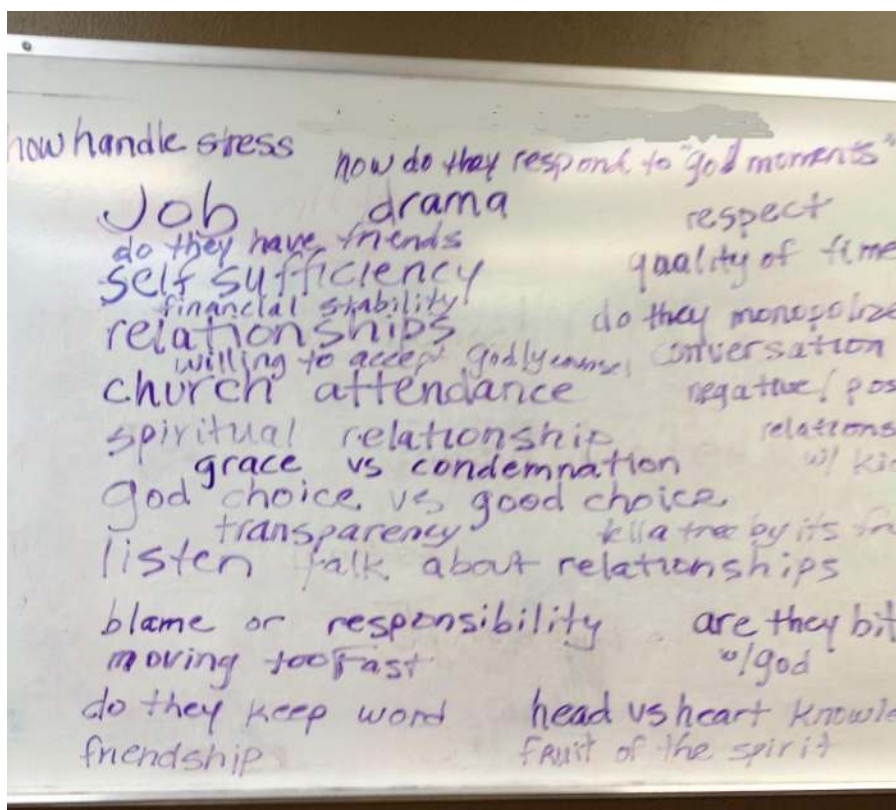 how handle stress
how do they respond to "god moments"
Job drama respect
do they have friends
self sufficiency quality of time
financial stability
relationships do they monopolize
willing to accept godly counsel conversation
church attendance negative/ pos
spiritual relationship relations
grace vs condemnation w/ ki
god choice vs good choice
transparency tell a tree by its
listen talk about relationships
blame or responsibility are they bit
moving too fast w/god
do they keep word head vs heart knowle
friendship fruit of the spirit